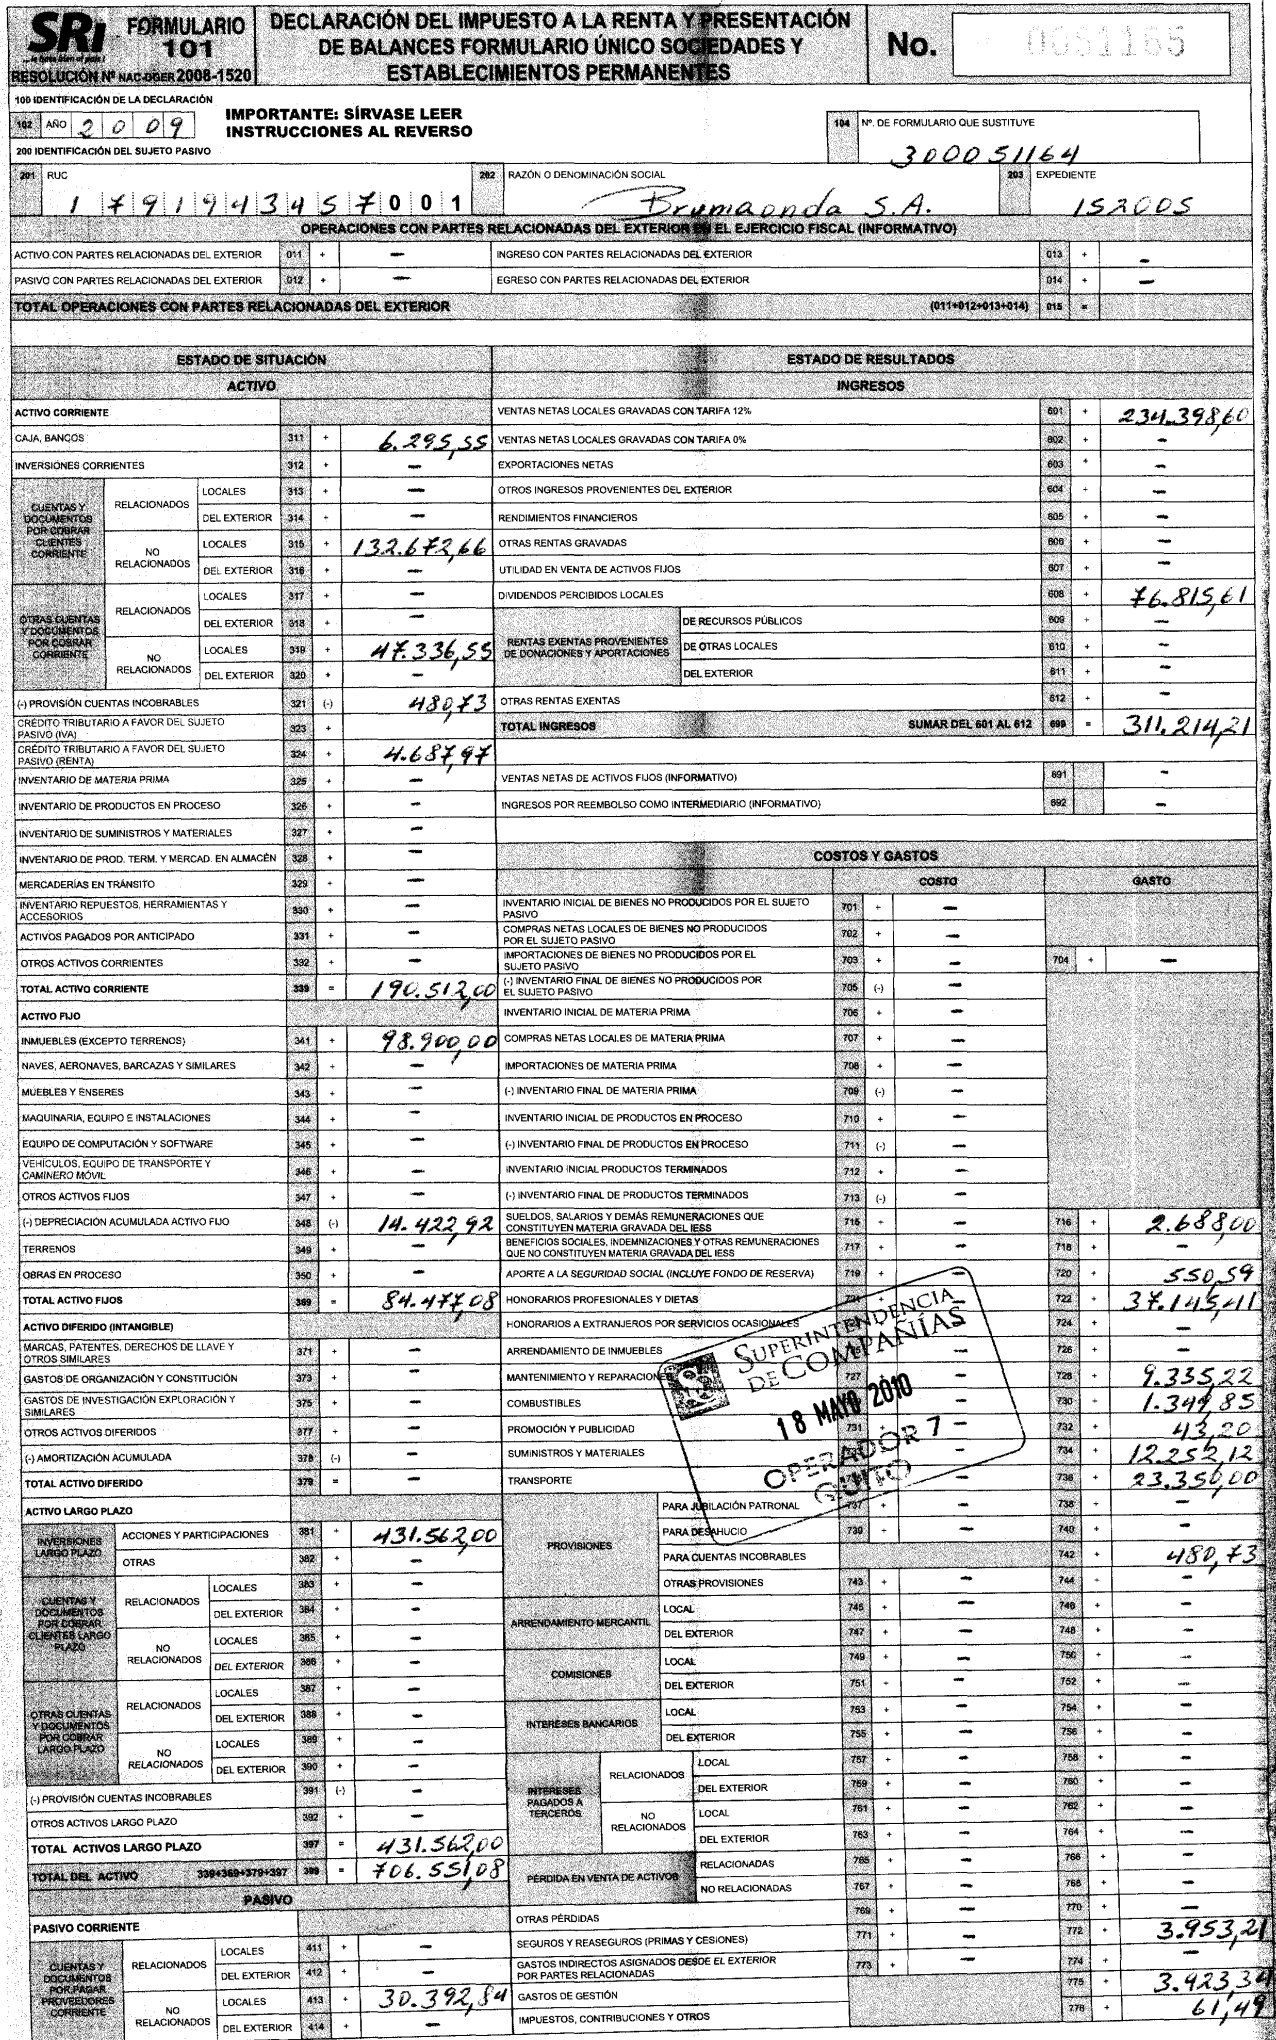 SRi FORMULARIO 101
...le hace bien al país!
RESOLUCIÓN Nº NAC-DGER 2008-1520
DECLARACIÓN DEL IMPUESTO A LA RENTA Y PRESENTACIÓN
DE BALANCES FORMULARIO ÚNICO SOCIEDADES Y
ESTABLECIMIENTOS PERMANENTES
No. 0051165
100 IDENTIFICACIÓN DE LA DECLARACIÓN
102 AÑO 2009
IMPORTANTE: SÍRVASE LEER
INSTRUCCIONES AL REVERSO
104 Nº. DE FORMULARIO QUE SUSTITUYE
300051164
200 IDENTIFICACIÓN DEL SUJETO PASIVO
201 RUC 1791943457001
202 RAZÓN O DENOMINACIÓN SOCIAL Brumaonda S.A.
203 EXPEDIENTE 152005
OPERACIONES CON PARTES RELACIONADAS DEL EXTERIOR EN EL EJERCICIO FISCAL (INFORMATIVO)
ACTIVO CON PARTES RELACIONADAS DEL EXTERIOR 011 + — INGRESO CON PARTES RELACIONADAS DEL EXTERIOR 013 + —
PASIVO CON PARTES RELACIONADAS DEL EXTERIOR 012 + — EGRESO CON PARTES RELACIONADAS DEL EXTERIOR 014 + —
TOTAL OPERACIONES CON PARTES RELACIONADAS DEL EXTERIOR (011+012+013+014) 015 =
ESTADO DE SITUACIÓN
ACTIVO
ACTIVO CORRIENTE
CAJA, BANCOS 311 + 6.295,55
INVERSIONES CORRIENTES 312 + —
CUENTAS Y DOCUMENTOS POR COBRAR CLIENTES CORRIENTE
RELACIONADOS LOCALES 313 + —
DEL EXTERIOR 314 + —
NO RELACIONADOS LOCALES 315 + 132.672,66
DEL EXTERIOR 316 + —
OTRAS CUENTAS Y DOCUMENTOS POR COBRAR CORRIENTE
RELACIONADOS LOCALES 317 + —
DEL EXTERIOR 318 + —
NO RELACIONADOS LOCALES 319 + 47.336,55
DEL EXTERIOR 320 + —
(-) PROVISIÓN CUENTAS INCOBRABLES 321 (-) 480,73
CRÉDITO TRIBUTARIO A FAVOR DEL SUJETO PASIVO (IVA) 323 + —
CRÉDITO TRIBUTARIO A FAVOR DEL SUJETO PASIVO (RENTA) 324 + 4.687,97
INVENTARIO DE MATERIA PRIMA 325 + —
INVENTARIO DE PRODUCTOS EN PROCESO 326 + —
INVENTARIO DE SUMINISTROS Y MATERIALES 327 + —
INVENTARIO DE PROD. TERM. Y MERCAD. EN ALMACÉN 328 + —
MERCADERÍAS EN TRÁNSITO 329 + —
INVENTARIO REPUESTOS, HERRAMIENTAS Y ACCESORIOS 330 + —
ACTIVOS PAGADOS POR ANTICIPADO 331 + —
OTROS ACTIVOS CORRIENTES 332 + —
TOTAL ACTIVO CORRIENTE 339 = 190.512,00
ACTIVO FIJO
INMUEBLES (EXCEPTO TERRENOS) 341 + 98.900,00
NAVES, AERONAVES, BARCAZAS Y SIMILARES 342 + —
MUEBLES Y ENSERES 343 + —
MAQUINARIA, EQUIPO E INSTALACIONES 344 + —
EQUIPO DE COMPUTACIÓN Y SOFTWARE 345 + —
VEHÍCULOS, EQUIPO DE TRANSPORTE Y CAMINERO MÓVIL 346 + —
OTROS ACTIVOS FIJOS 347 + —
(-) DEPRECIACIÓN ACUMULADA ACTIVO FIJO 348 (-) 14.422,92
TERRENOS 349 + —
OBRAS EN PROCESO 350 + —
TOTAL ACTIVO FIJOS 369 = 84.477,08
ACTIVO DIFERIDO (INTANGIBLE)
MARCAS, PATENTES, DERECHOS DE LLAVE Y OTROS SIMILARES 371 + —
GASTOS DE ORGANIZACIÓN Y CONSTITUCIÓN 373 + —
GASTOS DE INVESTIGACIÓN EXPLORACIÓN Y SIMILARES 375 + —
OTROS ACTIVOS DIFERIDOS 377 + —
(-) AMORTIZACIÓN ACUMULADA 378 (-) —
TOTAL ACTIVO DIFERIDO 379 = —
ACTIVO LARGO PLAZO
INVERSIONES LARGO PLAZO ACCIONES Y PARTICIPACIONES 381 + 431.562,00
OTRAS 382 + —
CUENTAS Y DOCUMENTOS POR COBRAR CLIENTES LARGO PLAZO
RELACIONADOS LOCALES 383 + —
DEL EXTERIOR 384 + —
NO RELACIONADOS LOCALES 385 + —
DEL EXTERIOR 386 + —
OTRAS CUENTAS Y DOCUMENTOS POR COBRAR LARGO PLAZO
RELACIONADOS LOCALES 387 + —
DEL EXTERIOR 388 + —
NO RELACIONADOS LOCALES 389 + —
DEL EXTERIOR 390 + —
(-) PROVISIÓN CUENTAS INCOBRABLES 391 (-) —
OTROS ACTIVOS LARGO PLAZO 392 + —
TOTAL ACTIVOS LARGO PLAZO 397 = 431.562,00
TOTAL DEL ACTIVO 339+369+379+397 399 = 706.551,08
PASIVO
PASIVO CORRIENTE
CUENTAS Y DOCUMENTOS POR PAGAR PROVEEDORES CORRIENTE
RELACIONADOS LOCALES 411 + —
DEL EXTERIOR 412 + —
NO RELACIONADOS LOCALES 413 + 30.392,84
DEL EXTERIOR 414 + —
ESTADO DE RESULTADOS
INGRESOS
VENTAS NETAS LOCALES GRAVADAS CON TARIFA 12% 601 + 234.398,60
VENTAS NETAS LOCALES GRAVADAS CON TARIFA 0% 602 + —
EXPORTACIONES NETAS 603 + —
OTROS INGRESOS PROVENIENTES DEL EXTERIOR 604 + —
RENDIMIENTOS FINANCIEROS 605 + —
OTRAS RENTAS GRAVADAS 606 + —
UTILIDAD EN VENTA DE ACTIVOS FIJOS 607 + —
DIVIDENDOS PERCIBIDOS LOCALES 608 + 76.815,61
RENTAS EXENTAS PROVENIENTES DE DONACIONES Y APORTACIONES
DE RECURSOS PÚBLICOS 609 + —
DE OTRAS LOCALES 610 + —
DEL EXTERIOR 611 + —
OTRAS RENTAS EXENTAS 612 + —
TOTAL INGRESOS SUMAR DEL 601 AL 612 699 = 311.214,21
VENTAS NETAS DE ACTIVOS FIJOS (INFORMATIVO) 691 —
INGRESOS POR REEMBOLSO COMO INTERMEDIARIO (INFORMATIVO) 692 —
COSTOS Y GASTOS
COSTO GASTO
INVENTARIO INICIAL DE BIENES NO PRODUCIDOS POR EL SUJETO PASIVO 701 + —
COMPRAS NETAS LOCALES DE BIENES NO PRODUCIDOS POR EL SUJETO PASIVO 702 + —
IMPORTACIONES DE BIENES NO PRODUCIDOS POR EL SUJETO PASIVO 703 + — 704 + —
(-) INVENTARIO FINAL DE BIENES NO PRODUCIDOS POR EL SUJETO PASIVO 705 (-) —
INVENTARIO INICIAL DE MATERIA PRIMA 706 + —
COMPRAS NETAS LOCALES DE MATERIA PRIMA 707 + —
IMPORTACIONES DE MATERIA PRIMA 708 + —
(-) INVENTARIO FINAL DE MATERIA PRIMA 709 (-) —
INVENTARIO INICIAL DE PRODUCTOS EN PROCESO 710 + —
(-) INVENTARIO FINAL DE PRODUCTOS EN PROCESO 711 (-) —
INVENTARIO INICIAL PRODUCTOS TERMINADOS 712 + —
(-) INVENTARIO FINAL DE PRODUCTOS TERMINADOS 713 (-) —
SUELDOS, SALARIOS Y DEMÁS REMUNERACIONES QUE CONSTITUYEN MATERIA GRAVADA DEL IESS 715 + — 716 + 2.688,00
BENEFICIOS SOCIALES, INDEMNIZACIONES Y OTRAS REMUNERACIONES QUE NO CONSTITUYEN MATERIA GRAVADA DEL IESS 717 + — 718 + —
APORTE A LA SEGURIDAD SOCIAL (INCLUYE FONDO DE RESERVA) 719 + — 720 + 550,59
HONORARIOS PROFESIONALES Y DIETAS 722 + 37.145,41
HONORARIOS A EXTRANJEROS POR SERVICIOS OCASIONALES 724 + —
ARRENDAMIENTO DE INMUEBLES 726 + —
MANTENIMIENTO Y REPARACIONES 727 — 728 + 9.335,22
COMBUSTIBLES 730 + 1.349,85
PROMOCIÓN Y PUBLICIDAD 731 — 732 + 43,20
SUMINISTROS Y MATERIALES — 734 + 12.252,12
TRANSPORTE — 736 + 23.350,00
SUPERINTENDENCIA DE COMPAÑÍAS
18 MAYO 2010
OPERADOR 7
QUITO
PROVISIONES
PARA JUBILACIÓN PATRONAL 737 + — 738 + —
PARA DESAHUCIO 739 + — 740 + —
PARA CUENTAS INCOBRABLES 742 + 480,73
OTRAS PROVISIONES 743 + — 744 + —
ARRENDAMIENTO MERCANTIL LOCAL 745 + — 746 + —
DEL EXTERIOR 747 + — 748 + —
COMISIONES LOCAL 749 + — 750 + —
DEL EXTERIOR 751 + — 752 + —
INTERESES BANCARIOS LOCAL 753 + — 754 + —
DEL EXTERIOR 755 + — 756 + —
INTERESES PAGADOS A TERCEROS
RELACIONADOS LOCAL 757 + — 758 + —
DEL EXTERIOR 759 + — 760 + —
NO RELACIONADOS LOCAL 761 + — 762 + —
DEL EXTERIOR 763 + — 764 + —
PÉRDIDA EN VENTA DE ACTIVOS RELACIONADAS 765 + — 766 + —
NO RELACIONADAS 767 + — 768 + —
OTRAS PÉRDIDAS 769 + — 770 + —
SEGUROS Y REASEGUROS (PRIMAS Y CESIONES) 771 + — 772 + 3.953,21
GASTOS INDIRECTOS ASIGNADOS DESDE EL EXTERIOR POR PARTES RELACIONADAS 773 + — 774 + —
GASTOS DE GESTIÓN 775 + 3.423,34
IMPUESTOS, CONTRIBUCIONES Y OTROS 776 + 61,49